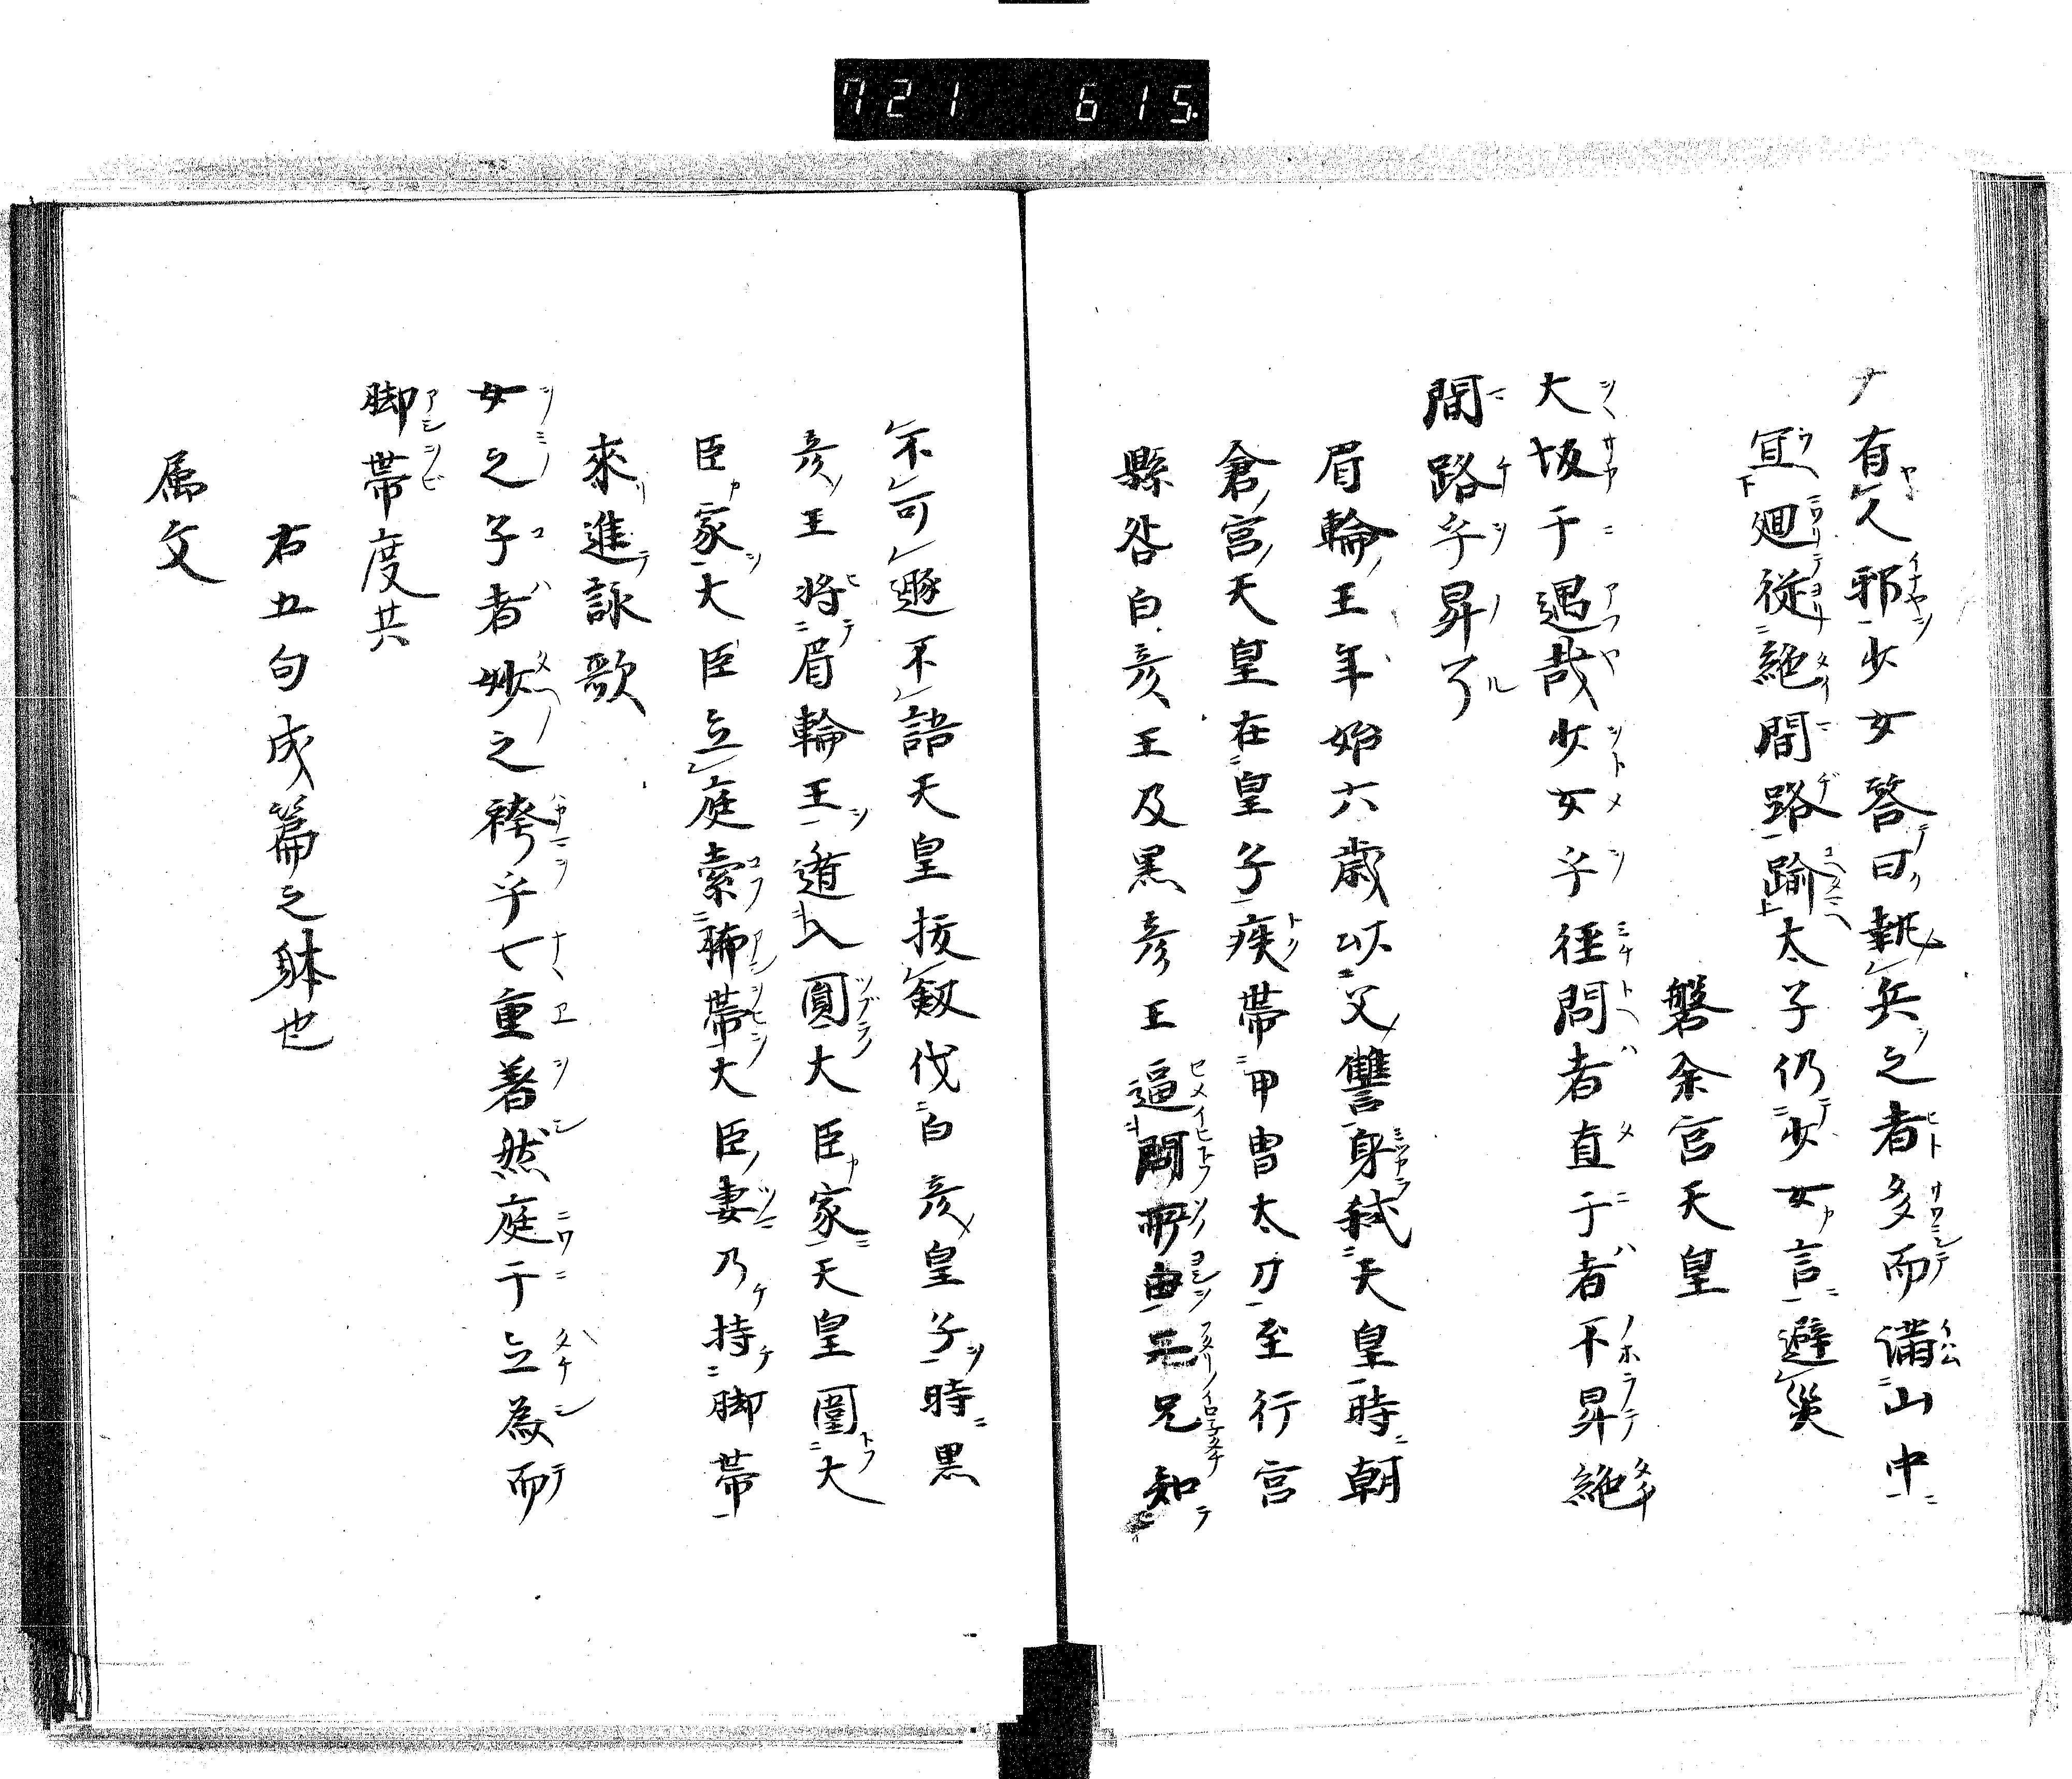 721 615.
有人邪少女答曰執兵之者多而満山中
宜廻従絶間路踰太子仍少女言避災
磐余宮天皇
大坂于遇哉少女乎径問者直于者不昇絶
間路乎昇了
眉輪王年始六歳以父讐身弑天皇時朝
倉宮天皇在皇子疾帯甲冑太刀至行宮
縣咎白彦王及黒彦王逼問所由二兄知
不可遯不語天皇抜剱伐白彦皇子時黒
彦王将眉輪王遁入圓大臣家天皇圍大
臣家大臣立庭索脚帯大臣妻乃持脚帯
來進詠歌
女之子者妙之袴乎七重著然庭于立為而
脚帯度共
右五句成篇之躰也
属文